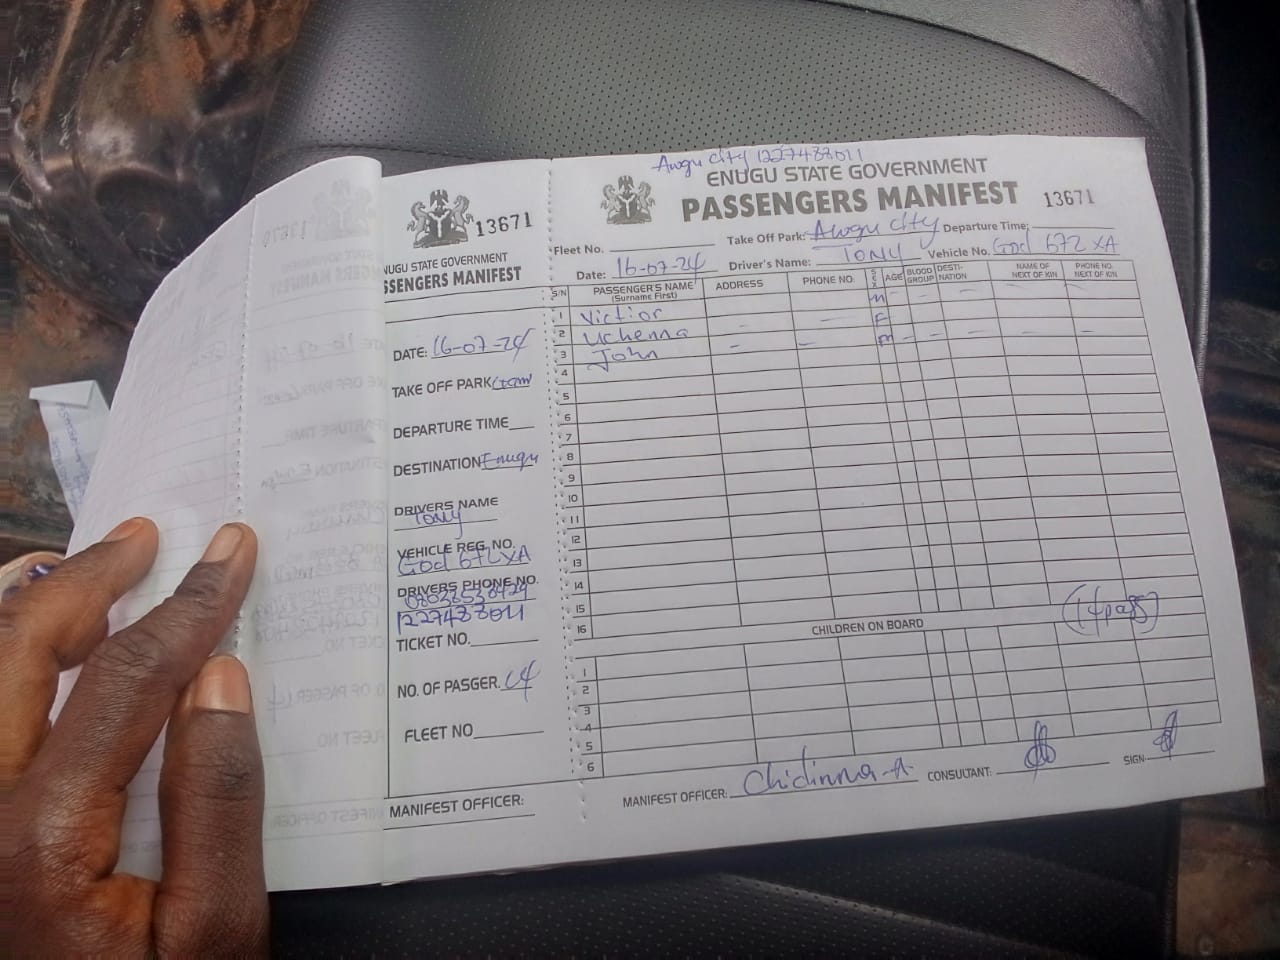 13671
NUGU STATE GOVERNMENT
SSENGERS MANIFEST
DATE: 16-07-24
TAKE OFF PARK
DEPARTURE TIME
DESTINATION Enugu
DRIVERS NAME
TONY
VEHICLE REG. NO.
God 672 XA
DRIVERS PHONE NO.
1227488011
TICKET NO.
NO. OF PASGER.
FLEET NO
MANIFEST OFFICER:
Awgu city 1227488011
ENUGU STATE GOVERNMENT
PASSENGERS MANIFEST 13671
Fleet No. Take Off Park: Awgu city Departure Time:
Date: 16-07-24 Driver's Name: TONY Vehicle No. God 672 XA
S/N PASSENGER'S NAME (Surname First) ADDRESS PHONE NO. SEX AGE BLOOD GROUP DESTI-NATION NAME OF NEXT OF KIN PHONE NO. NEXT OF KIN
1 Victior M
2 Uchenna F
3 John M
4
5
6
7
8
9
10
11
12
13
14
15
16
(14pass)
CHILDREN ON BOARD
1
2
3
4
5
6
MANIFEST OFFICER: Chidinma-A CONSULTANT: SIGN